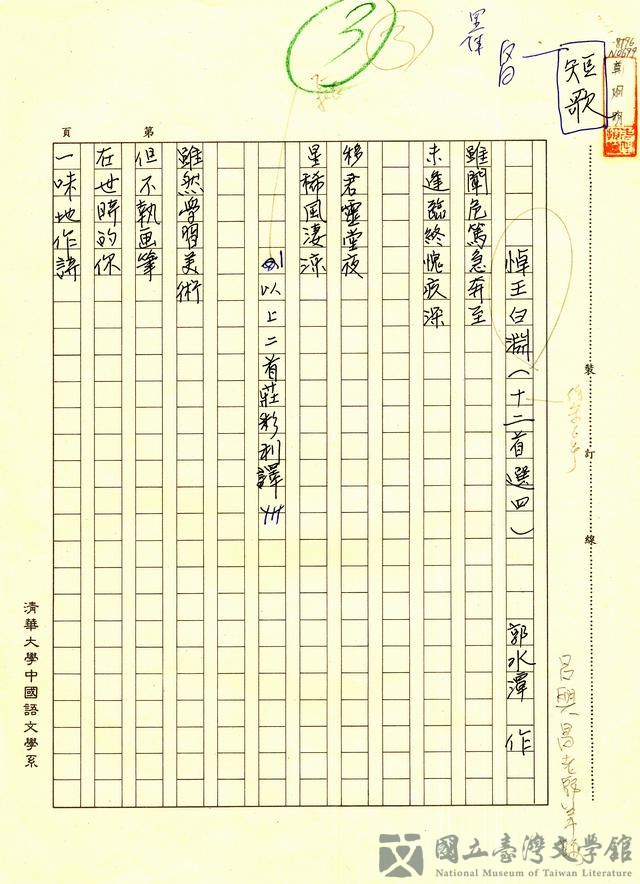 3
3
短歌
悼王白淵（十二首選四）　郭水潭　作
雖聞危篤急奔至
未逢臨終愧疚深
移君靈堂夜
星稀風淒涼
以上二首莊彩利譯
雖然學習美術
但不執画筆
在世時的你
一味地作詩
第
頁
裝
訂
線
清華大學中國語文學系
國立臺灣文學館
National Museum of Taiwan Literature